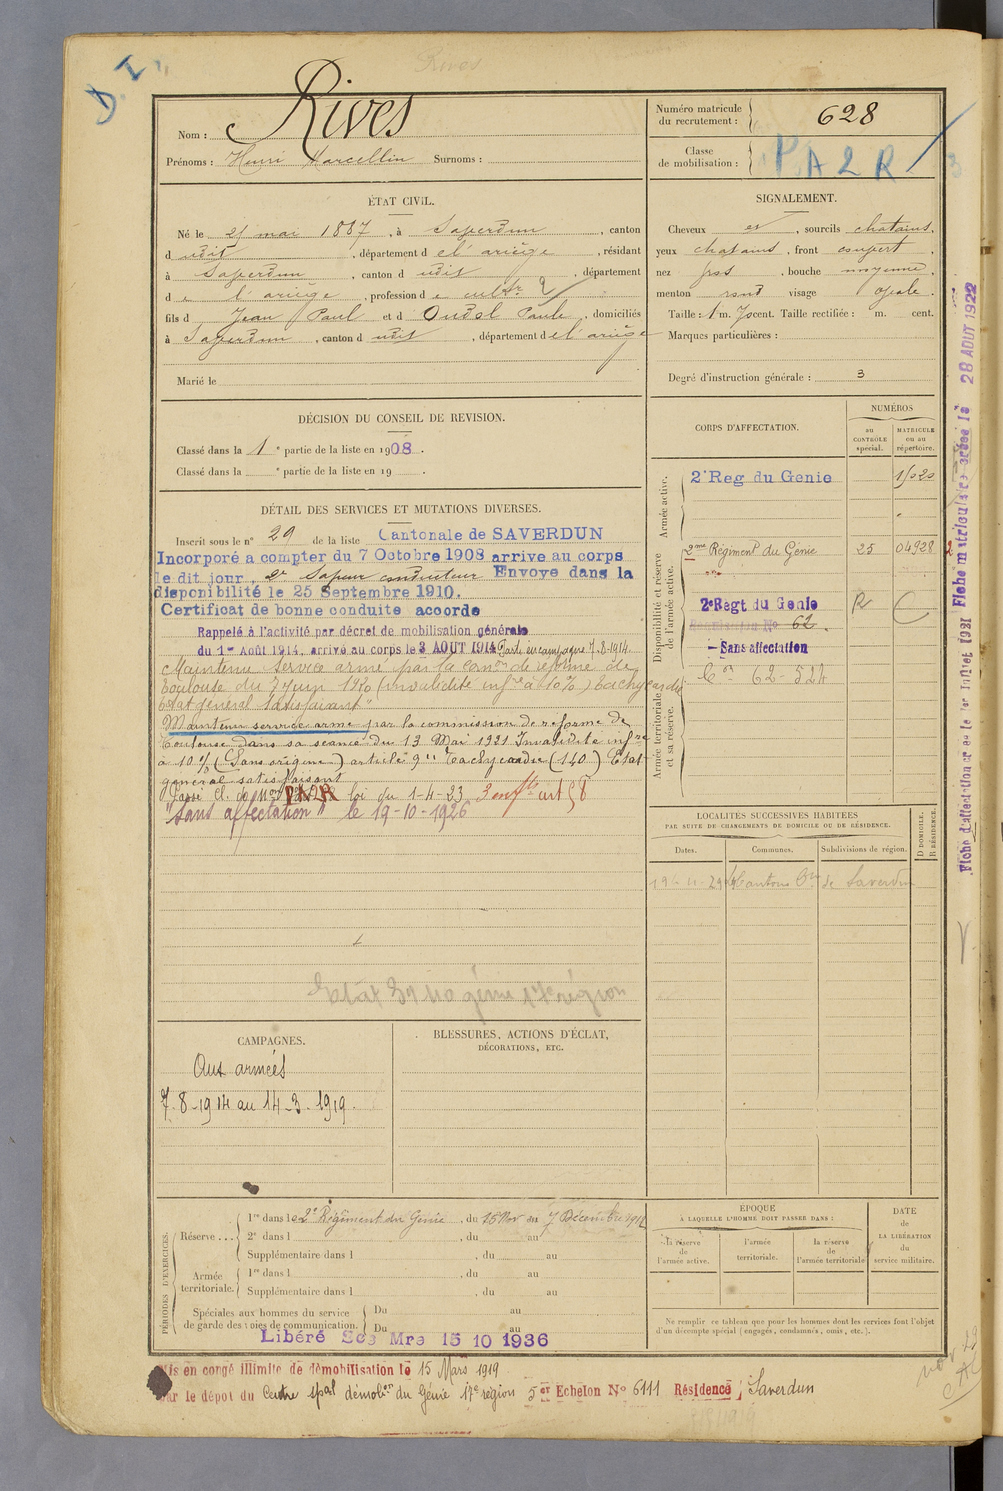 D. I.
Rives
Nom : Rives
Prénoms : Henri Marcellin Surnoms :
Numéro matricule
du recrutement : 628
Classe
de mobilisation : P.A 2 R
ÉTAT CIVIL.
Né le 21 mai 1887, à Saverdun, canton
d udit, département d e l'ariège, résidant
à Saverdun, canton d udit, département
d e l'ariège, profession d e cultr 2
fils d Jean Paul et d Oudel Paule, domiciliés
à Saverdun, canton d udit, département d e l'ariège
Marié le
SIGNALEMENT.
Cheveux et, sourcils chatains,
yeux chatains, front couvert,
nez gros, bouche moyenne,
menton rond visage ovale.
Taille : 1 m. 70 cent. Taille rectifiée : m. cent.
Marques particulières :
Degré d'instruction générale : 3
DÉCISION DU CONSEIL DE REVISION.
Classé dans la 1 e partie de la liste en 1908.
Classé dans la e partie de la liste en 19 .
DÉTAIL DES SERVICES ET MUTATIONS DIVERSES.
Inscrit sous le n° 29 de la liste Cantonale de SAVERDUN
Incorporé a compter du 7 Octobre 1908 arrive au corps
le dit jour, 2e Sapeur conducteur Envoye dans la
disponibilité le 25 Septembre 1910.
Certificat de bonne conduite accorde
Rappelé à l'activité par décret de mobilisation générale
du 1er Août 1914, arrivé au corps le 3 AOUT 1914 Parti en campagne 7.8.1914.
Maintenu service armé par la Comon de réforme de
Toulouse du 7 Juin 1920 (invalidité infre à 10%) tachycardie
Etat général satisfaisant"
Maintenu service armé par la commission de réforme de
Toulouse dans sa séance du 13 Mai 1921 Invalidité infre
à 10% (Sans origine) article 9" Tachycardie (140) Etat
général satisfaisant
Passé cl. de Mon PA2R loi du 1-4-23 3 enfts art 58
"Sans affectation" le 19-10-1926
génie 17e région
CORPS D'AFFECTATION.
NUMÉROS
au
CONTRÔLE
spécial.
MATRICULE
ou au
répertoire.
Armée active.
2e Reg du Genie
Disponibilité et réserve
de l'armée active.
2me Régiment du Génie 25 04928
2eRegt du Genie R C
62
Sans affectation
Armée territoriale
et sa réserve.
62-524
LOCALITÉS SUCCESSIVES HABITÉES
PAR SUITE DE CHANGEMENTS DE DOMICILE OU DE RÉSIDENCE.
Dates.
Communes.
Subdivisions de région.
D DOMICILE.
R RÉSIDENCE.
de Saverdun
CAMPAGNES.
Aux armées
7-8-1914 au 14-3-1919.
BLESSURES, ACTIONS D'ÉCLAT,
DÉCORATIONS, ETC.
PÉRIODES D'EXERCICES.
Réserve . . .
1re dans le 2e Régiment du Génie, du 15 Nov au 7 Décembre 1912
2e dans l , du au
Supplémentaire dans l , du au
Armée
territoriale.
1re dans l , du au
Supplémentaire dans l , du au
Spéciales aux hommes du service
de garde des voies de communication.
Du au
Du au
Libéré Sce Mre 15 10 1936
ÉPOQUE
À LAQUELLE L'HOMME DOIT PASSER DANS :
la réserve
de
l'armée active.
l'armée
territoriale.
la réserve
de
l'armée territoriale
DATE
de
LA LIBÉRATION
du
service militaire.
Ne remplir ce tableau que pour les hommes dont les services font l'objet
d'un décompte spécial (engagés, condamnés, omis, etc.).
Mis en congé illimité de démobilisation le 15 Mars 1919
par le dépot du Centre spal démobon du Génie 17e région 5er Echelon No 6111 Résidence Saverdun
28 AOUT 1922